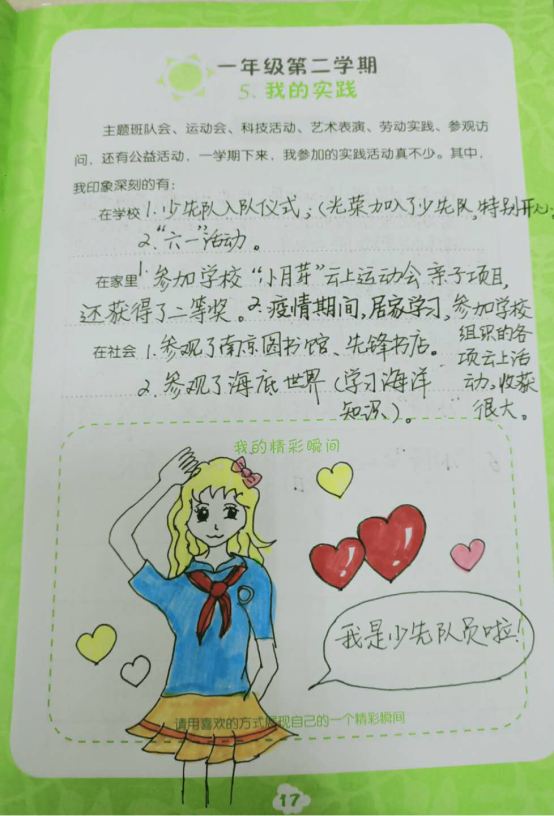 一年级第二学期
5. 我的实践
主题班队会、运动会、科技活动、艺术表演、劳动实践、参观访
问，还有公益活动，一学期下来，我参加的实践活动真不少。其中，
我印象深刻的有：
在学校 1. 少先队入队仪式；（光荣加入了少先队，特别开心
2. “六一”活动。
在家里 1. 参加学校“小月芽”云上运动会亲子项目，
还获得了二等奖。2. 疫情期间，居家学习，参加学校
组织的各
项云上活
动，收获
很大。
在社会 1. 参观了南京图书馆、先锋书店。
2. 参观了海底世界（学习海洋
知识）。
我的精彩瞬间
我是少先队员啦！
请用喜欢的方式展现自己的一个精彩瞬间
17